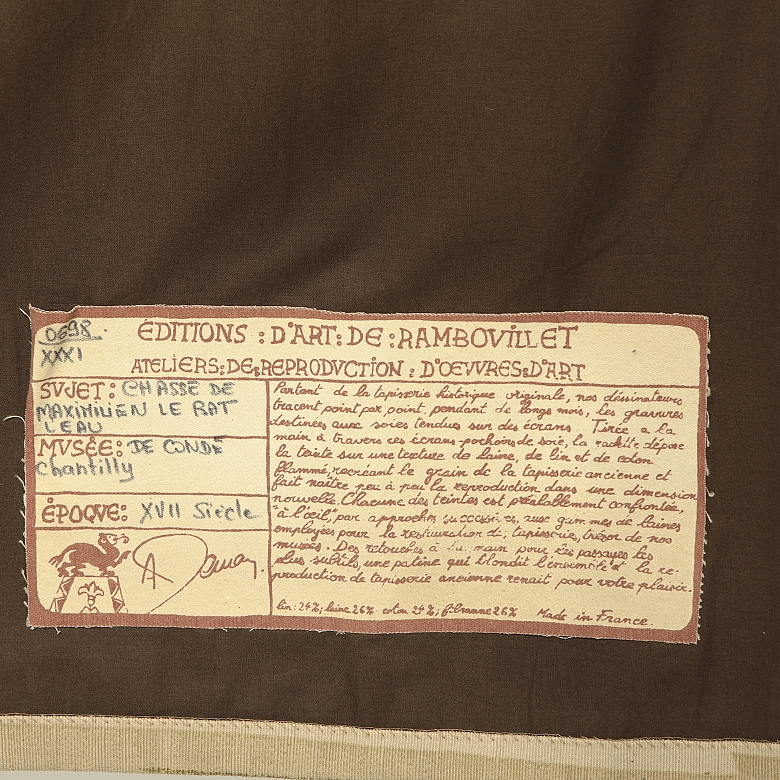 0698
XXXI
ÉDITIONS : D'ART : DE : RAMBOVILLET
ATELIERS : DE : REPRODVCTION : D'OEVVRES : D'ART
SVJET : CHASSE DE
MAXIMILIEN LE RAT
L'EAU
MVSÉE : DE CONDÉ
Chantilly
ÉPOQVE : XVII Siècle
Partant de la tapisserie historique originale, nos dessinateurs
tracent point par point, pendant de longs mois, les gravures
destinées aux soies tendues sur des écrans. Tirée a la
main à travers ces écrans pochoirs de soie, la raclette dépose
la teinte sur une texture de laine, de lin et de coton
flammé, recréant le grain de la tapisserie ancienne et
fait naître peu à peu la reproduction dans une dimension
nouvelle. Chacune des teintes est préalablement confrontée,
"à l'oeil", par approches successives, aux gammes de laines
employées pour la restauration de tapisserie, trésor de nos
musées. Des retouches à la main pour les passages les
plus subtils, une patine qui blondit l'ensemble et la re-
production de tapisserie ancienne renait pour votre plaisir.
lin : 24% ; laine 26% coton 24% ; fibranne 26% Made in France.